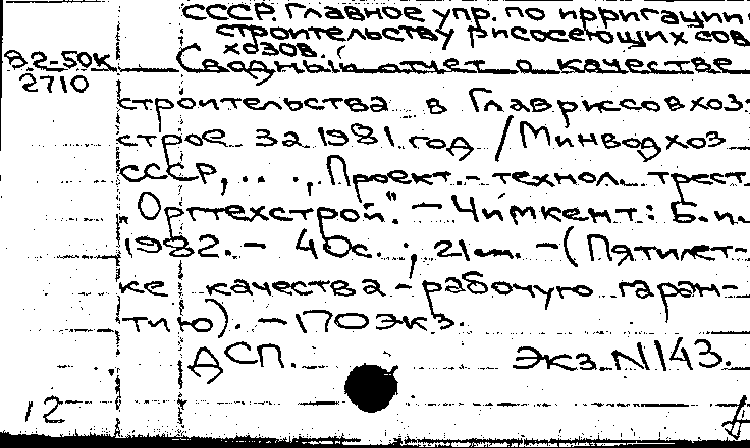 СССР. Главное упр. по ирригации и
строительству рисосеющих сов
хозов.
82-50К
2710
Сводный отчет о качестве
строительства в Главриссовхоз:
строе за 1981 год / Минводхоз
СССР, . . ., Проект.- технол. трест
"Оргтехстрой". - Чимкент: Б.и.
1982. - 40с. ; 21 см. - (Пятилет-
ке качества - рабочую гаран-
тию). - 170 экз.
ДСП. Экз. N 143.
12